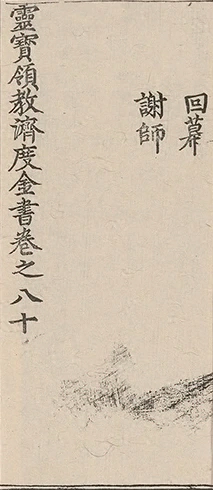 回幕
謝師
靈寶領教濟度金書卷之八十